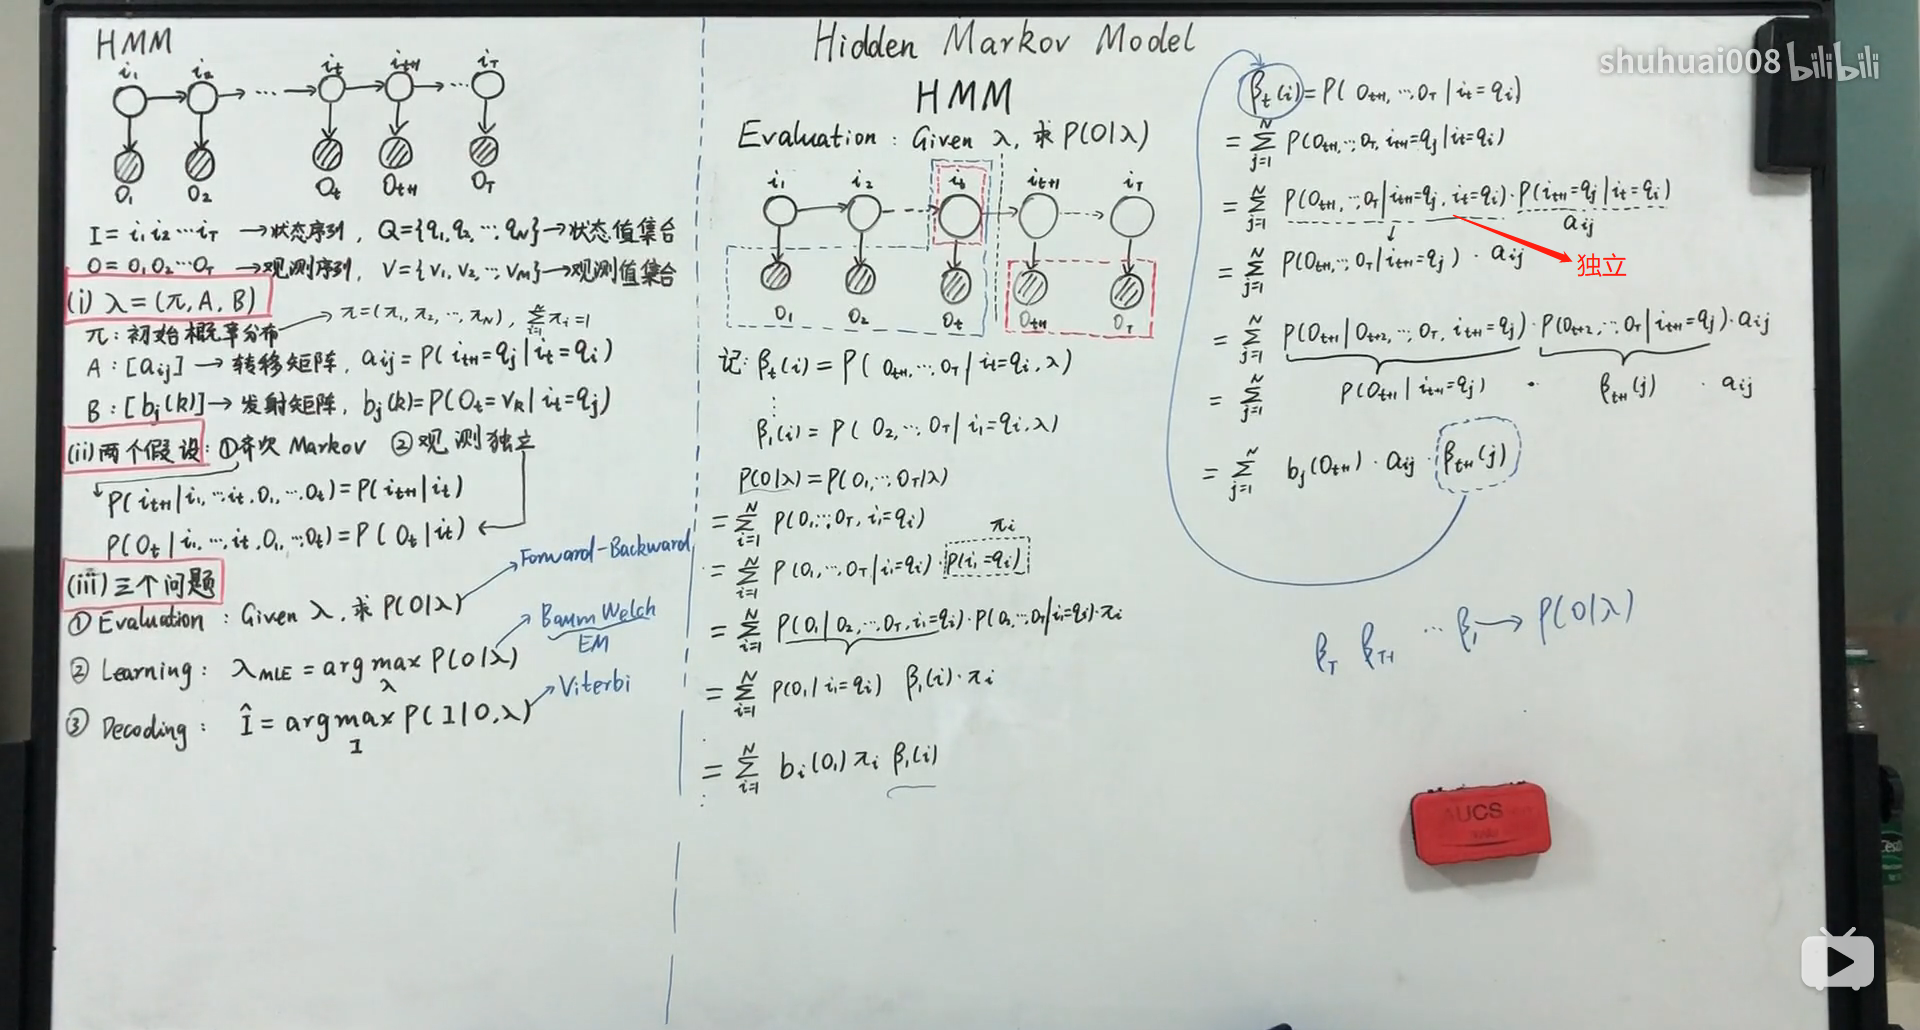 HMM
i₁ i₂ iₜ iₜ₊₁ i_T
...
O₁ O₂ Oₜ Oₜ₊₁ O_T
I = i₁ i₂ ⋯ i_T → 状态序列, Q = {q₁, q₂, ⋯, q_N} → 状态值集合
O = O₁ O₂ ⋯ O_T → 观测序列, V = {v₁, v₂, ⋯, v_M} → 观测值集合
(i) λ = (π, A, B)
π : 初始概率分布 → π = (π₁, π₂, ⋯, π_N), Σ_{i=1}^N πᵢ = 1
A : [aᵢⱼ] → 转移矩阵, aᵢⱼ = P(iₜ₊₁ = qⱼ | iₜ = qᵢ)
B : [bⱼ(k)] → 发射矩阵, bⱼ(k) = P(Oₜ = v_k | iₜ = qⱼ)
(ii) 两个假设 : ① 齐次 Markov ② 观测独立
P(iₜ₊₁ | i₁, ⋯, iₜ, O₁, ⋯, Oₜ) = P(iₜ₊₁ | iₜ)
P(Oₜ | i₁, ⋯, iₜ, O₁, ⋯, Oₜ) = P(Oₜ | iₜ)
(iii) 三个问题
① Evaluation : Given λ, 求 P(O|λ) → Forward-Backward
② Learning : λ_MLE = arg max_λ P(O|λ) → Baum Welch
EM
③ Decoding : Î = arg max_I P(I|O, λ) → Viterbi
Hidden Markov Model
HMM
Evaluation : Given λ, 求 P(O|λ)
i₁ i₂ iₜ iₜ₊₁ i_T
O₁ O₂ Oₜ Oₜ₊₁ O_T
记: βₜ(i) = P(Oₜ₊₁, ⋯, O_T | iₜ = qᵢ, λ)
⋮
β₁(i) = P(O₂, ⋯, O_T | i₁ = qᵢ, λ)
P(O|λ) = P(O₁, ⋯, O_T | λ)
= Σ_{i=1}^N P(O₁, ⋯, O_T, i₁ = qᵢ)
πᵢ
= Σ_{i=1}^N P(O₁, ⋯, O_T | i₁ = qᵢ) · P(i₁ = qᵢ)
= Σ_{i=1}^N P(O₁ | O₂, ⋯, O_T, i₁ = qᵢ) · P(O₂, ⋯, O_T | i₁ = qᵢ) · πᵢ
= Σ_{i=1}^N P(O₁ | i₁ = qᵢ) β₁(i) · πᵢ
= Σ_{i=1}^N bᵢ(O₁) πᵢ β₁(i)
βₜ(i) = P(Oₜ₊₁, ⋯, O_T | iₜ = qᵢ)
= Σ_{j=1}^N P(Oₜ₊₁, ⋯, O_T, iₜ₊₁ = qⱼ | iₜ = qᵢ)
= Σ_{j=1}^N P(Oₜ₊₁, ⋯, O_T | iₜ₊₁ = qⱼ, iₜ = qᵢ) · P(iₜ₊₁ = qⱼ | iₜ = qᵢ)
aᵢⱼ
独立
= Σ_{j=1}^N P(Oₜ₊₁, ⋯, O_T | iₜ₊₁ = qⱼ) · aᵢⱼ
= Σ_{j=1}^N P(Oₜ₊₁ | Oₜ₊₂, ⋯, O_T, iₜ₊₁ = qⱼ) · P(Oₜ₊₂, ⋯, O_T | iₜ₊₁ = qⱼ) · aᵢⱼ
= Σ_{j=1}^N P(Oₜ₊₁ | iₜ₊₁ = qⱼ) · βₜ₊₁(j) · aᵢⱼ
= Σ_{j=1}^N bⱼ(Oₜ₊₁) · aᵢⱼ · βₜ₊₁(j)
β_T β_{T-1} ⋯ β₁ → P(O|λ)
shuhuai008 bilibili
AUCS